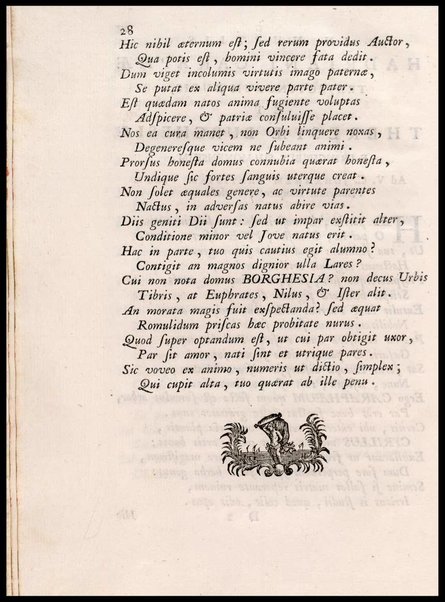 28
Hic nihil æternum est; sed rerum providus Auctor,
Qua potis est, homini vincere fata dedit.
Dum viget incolumis virtutis imago paternæ,
Se putat ex aliqua vivere parte pater.
Est quædam natos anima fugiente voluptas
Adspicere, & patriæ consuluisse placet.
Nos ea cura manet, non Orbi linquere noxas,
Degeneresque vicem ne subeant animi.
Prorsus honesta domus connubia quærat honesta,
Undique sic fortes sanguis uterque creat.
Non solet æquales genere, ac virtute parentes
Nactus, in adversas natus abire vias.
Diis geniti Dii sunt: sed ut impar exstitit alter,
Conditione minor vel Jove natus erit.
Hac in parte, tuo quis cautius egit alumno?
Contigit an magnos dignior ulla Lares?
Cui non nota domus BORGHESIA? non decus Urbis
Tibris, at Euphrates, Nilus, & Ister alit.
An morata magis fuit exspectanda? sed æquat
Romulidum priscas hæc probitate nurus.
Quod super optandum est, ut cui par obtigit uxor,
Par sit amor, nati sint et utrique pares.
Sic voveo ex animo, numeris ut dictio, simplex;
Qui cupit alta, tuo quærat ab ille penu.